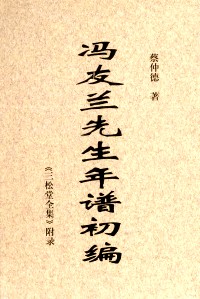 蔡仲德 著
冯友兰先生年谱初编
《三松堂全集》附录